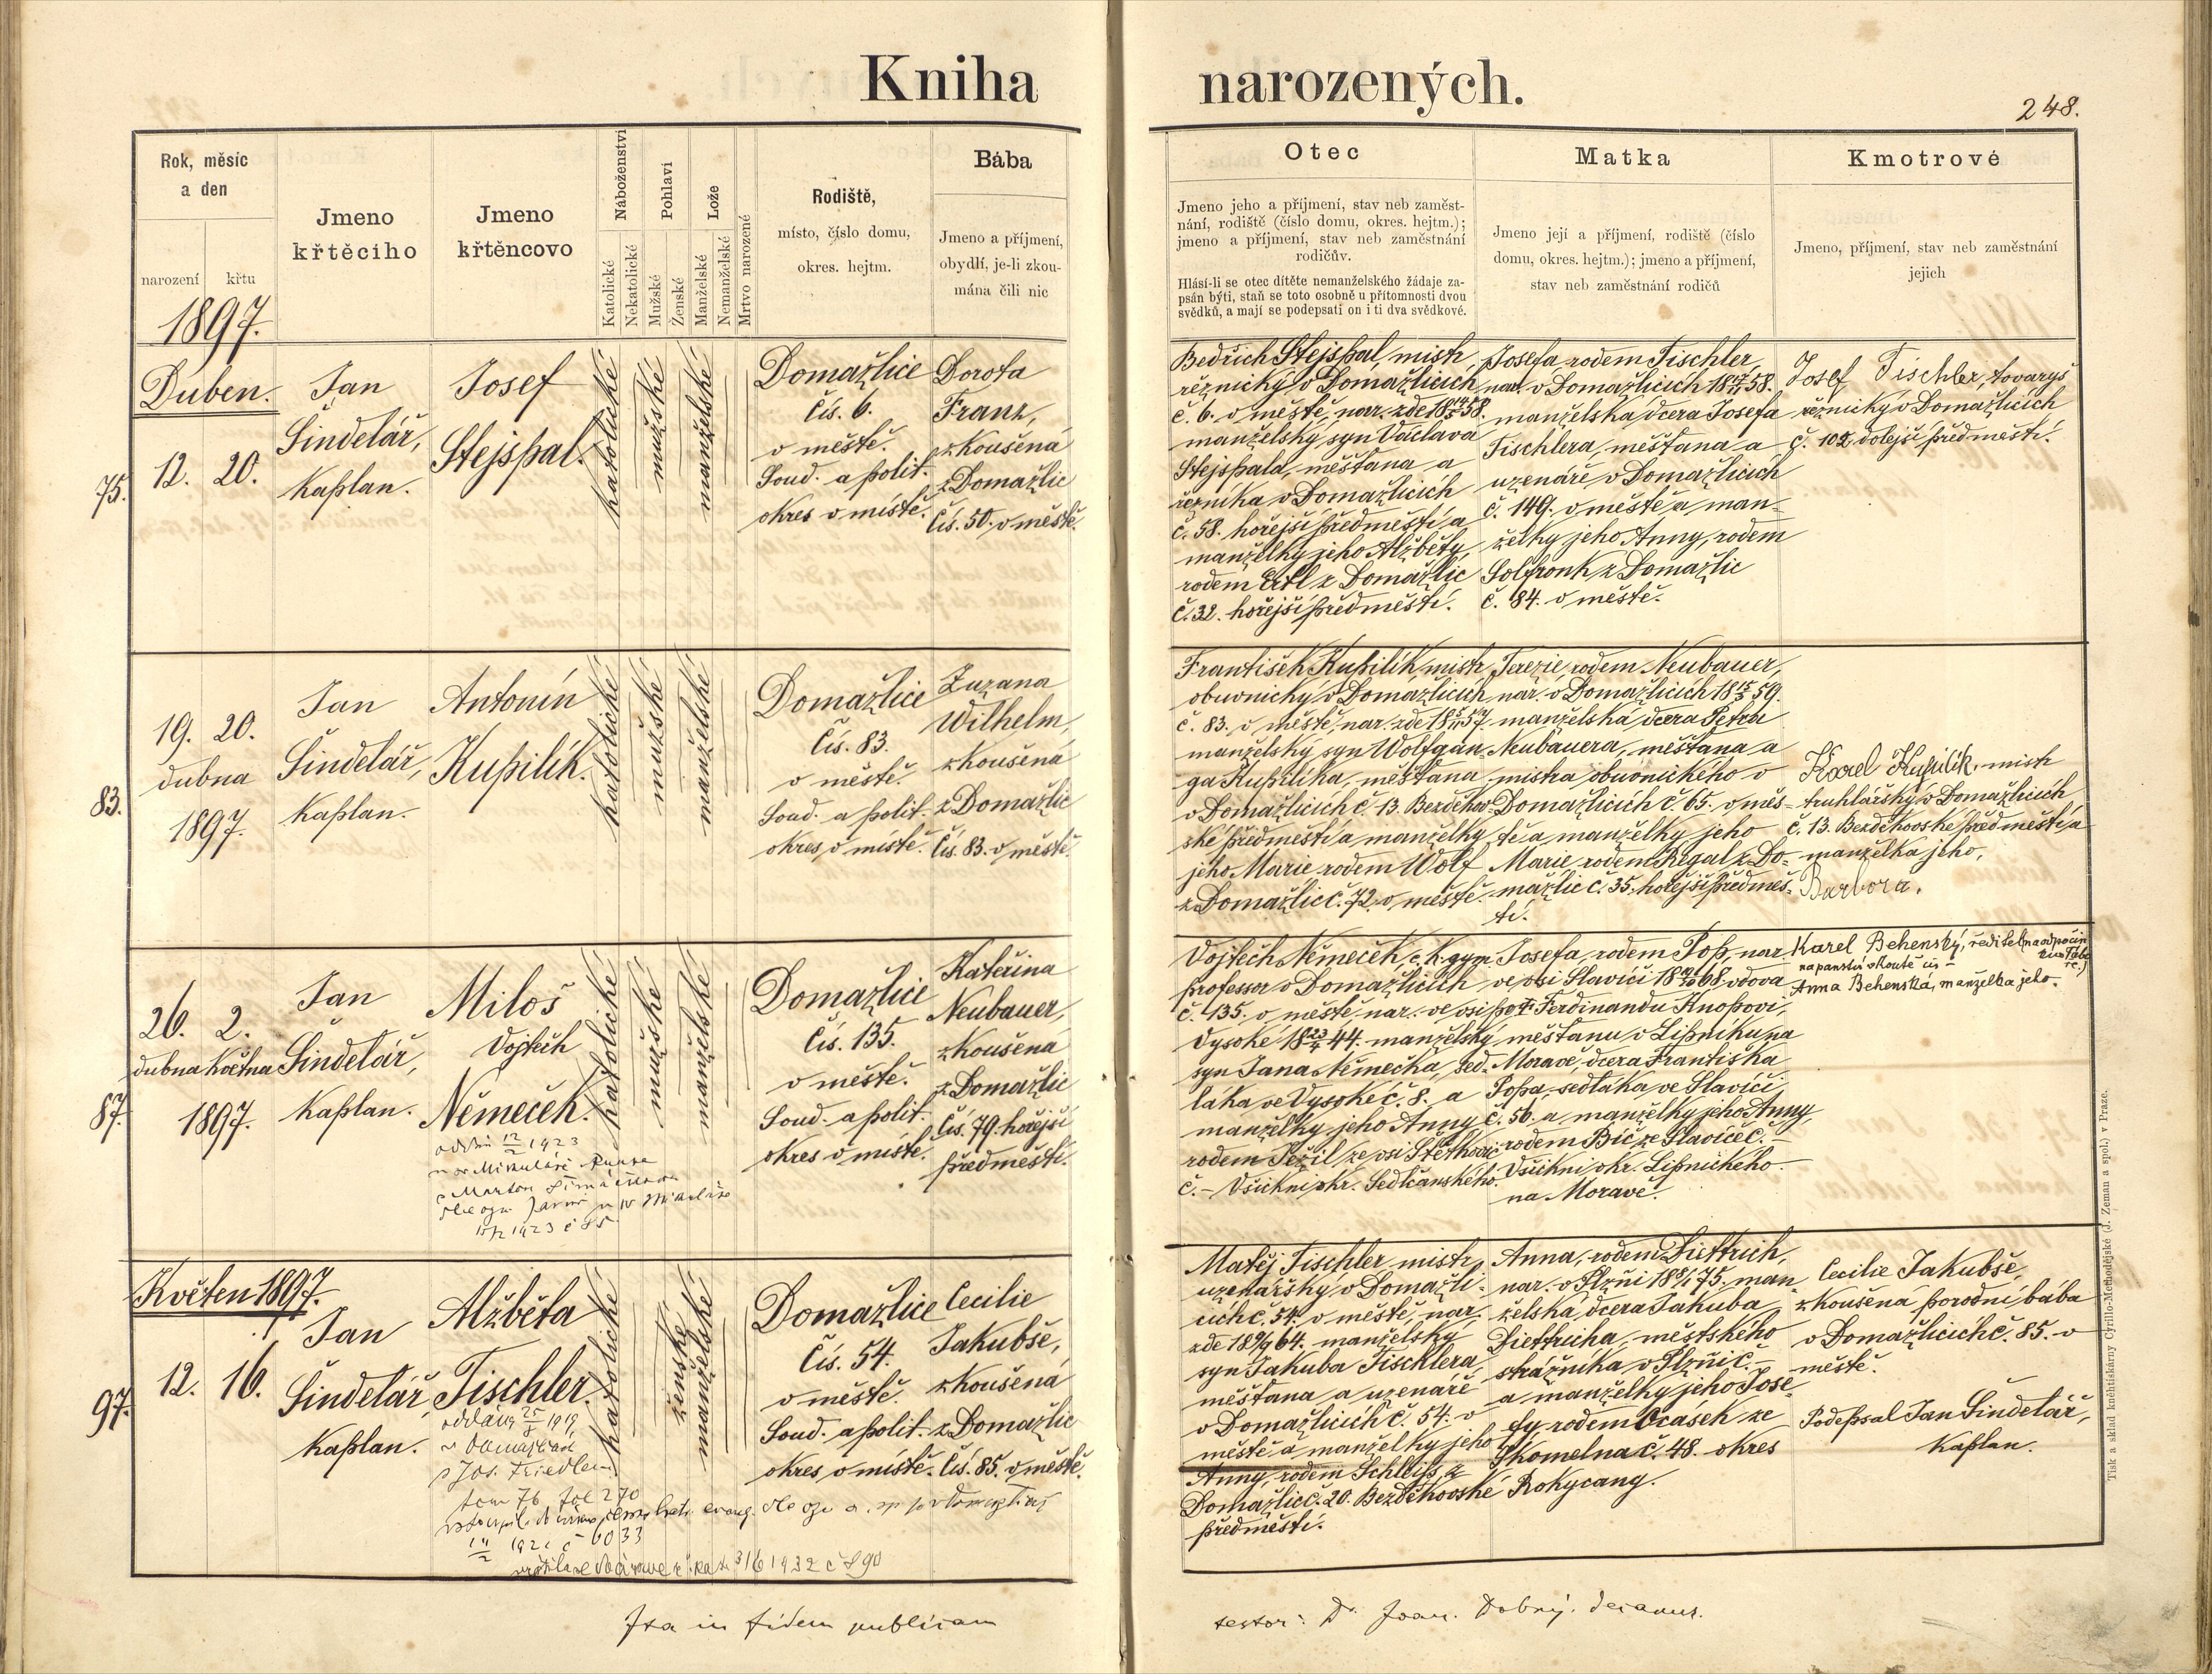 Kniha narozených.
248.
Rok, měsíc
a den
narození
křtu
Jmeno
křtěcího
Jmeno
křtěncovo
Náboženství
Katolické
Nekatolické
Pohlaví
Mužské
Ženské
Lože
Manželské
Nemanželské
Mrtvo narozené
Rodiště,
místo, číslo domu,
okres. hejtm.
Bába
Jmeno a příjmení,
obydlí, je-li zkou-
mána čili nic
Otec
Jmeno jeho a příjmení, stav neb zaměst-
nání, rodiště (číslo domu, okres. hejtm.);
jmeno a příjmení, stav neb zaměstnání
rodičův.
Hlásí-li se otec dítěte nemanželského žádaje za-
psán býti, staň se toto osobně u přítomnosti dvou
svědků, a mají se podepsati on i ti dva svědkové.
Matka
Jmeno její a příjmení, rodiště (číslo
domu, okres. hejtm.); jmeno a příjmení,
stav neb zaměstnání rodičů
Kmotrové
Jmeno, příjmení, stav neb zaměstnání
jejich
1897.
Duben.
75.
12. 20.
Jan
Šindelář,
Kaplan.
Josef
Stejspal.
katolické
mužské
manželské
Domažlice
Čís. 6.
v městě.
Soud. a polit.
okres v místě.
Dorota
Franz,
zkoušená
z Domažlic
Čís. 50. v městě.
Bedřich Stejspal, mistr
řeznický v Domažlicích
č. 6. v městě, nar. zde 18 58.
manželský syn Václava
Stejspala, měšťana a
řezníka v Domažlicích
č. 58. hořejší předměstí a
manželky jeho Alžběty,
rodem Ertl z Domažlic
č. 32. hořejší předměstí.
Josefa, rodem Tischler,
nar. v Domažlicích 18 58.
manželská dcera Josefa
Tischlera, měšťana a
uzenáře v Domažlicích
č. 149. v městě a man-
želky jeho Anny, rodem
Solfronk z Domažlic
č. 84. v městě.
Josef Tischler, tovaryš
řeznický v Domažlicích
č. 102 dolejší předměstí.
83.
19. 20.
dubna
1897.
Jan
Šindelář,
Kaplan.
Antonín
Kupilík.
katolické
mužské
manželské
Domažlice
Čís. 83.
v městě.
Soud. a polit.
okres v místě.
Zuzana
Wilhelm,
zkoušená
z Domažlic
Čís. 83. v městě.
František Kupilík, mistr
obuvnický v Domažlicích
č. 83. v městě, nar. zde 18 57.
manželský syn Wolfgan-
ga Kupilíka, měšťana
v Domažlicích č. 13. Bezděkov-
ské předměstí a manželky
jeho Marie rodem Wolf
z Domažlic č. 72. v městě.
Terezie, rodem Neubauer,
nar. v Domažlicích 18 59.
manželská dcera Petra
Neubauera, měšťana a
mistra obuvnického v
Domažlicích č. 65. v měs-
tě a manželky jeho
Marie, rodem Régal z Do-
mažlic č. 35. hořejší předměs-
tí.
Karel Kupilík, mistr
truhlářský v Domažlicích
č. 13. Bezděkovské předměstí a
manželka jeho,
Barbora.
87.
26. 2.
dubna Května
1897.
Jan
Šindelář,
Kaplan.
Miloš
Vojtěch
Němeček.
1923
1923 č 85
katolické
mužské
manželské
Domažlice
Čís. 135.
v městě.
Soud. a polit.
okres v místě.
Kateřina
Neubauer,
zkoušená
z Domažlic
Čís. 79. hořejší
předměstí.
Vojtěch Němeček, c. k. gym.
professor v Domažlicích
č. 135. v městě, nar. ve vsi
Vysoké 18 44. manželský
syn Jana Němečka, sed-
láka ve Vysoké č. 8. a
manželky jeho Anny
rodem Ježil ze vsi Štětkovic
č. – Všichni okr. Sedlčanského.
Josefa, rodem Pop, nar.
ve vsi Slavíči 18 68, vdova
po † Ferdinandu Knopovi,
měšťanu v Lipníku na
Moravě, dcera Františka
Popa, sedláka ve Slavíči
č. 56. a manželky jeho Anny,
rodem Bič ze Slavíče č. –
Všichni okr. Lipnického
na Moravě.
Karel Behenský, ředitel na odpočin
na panství
Anna Behenská, manželka jeho.
Květen 1897.
97.
12. 16.
Jan
Šindelář,
Kaplan.
Alžběta
Tischler.
oddána 1919
v Domažlicích
s Jos. Friedlem
tom 76 fol 270
6033
1932 č 890
katolické
ženské
manželské
Domažlice
Čís. 54.
v městě.
Soud. a polit.
okres v místě.
Cecilie
Jakubše,
zkoušená
z Domažlic
Čís. 85. v městě.
Matěj Tischler, mistr
uzenářský v Domažli-
cích č. 54. v městě, nar.
zde 18 64. manželský
syn Jakuba Tischlera,
měšťana a uzenáře
v Domažlicích č. 54. v
městě a manželky jeho
Anny, rodem Schleiss z
Domažlic č. 20. Bezděkovské
předměstí.
Anna, rodem Diettrich,
nar. v Plzni 18 75. man-
želská dcera Jakuba
Diettricha, městského
strážníka v Plzni č. –
a manželky jeho Jose-
fy, rodem Ocásek ze
Skomelna č. 48. okres
Rokycany.
Cecilie Jakubše,
zkoušená porodní bába
v Domažlicích č. 85. v
městě.
Podepsal Jan Šindelář,
Kaplan.
Ita in fidem publicam
testor: Dr. Joan. Dobrý, decanus.
Tisk a sklad knihtiskárny Cyrillo-Methodějské (J. Zeman a spol.) v Praze.